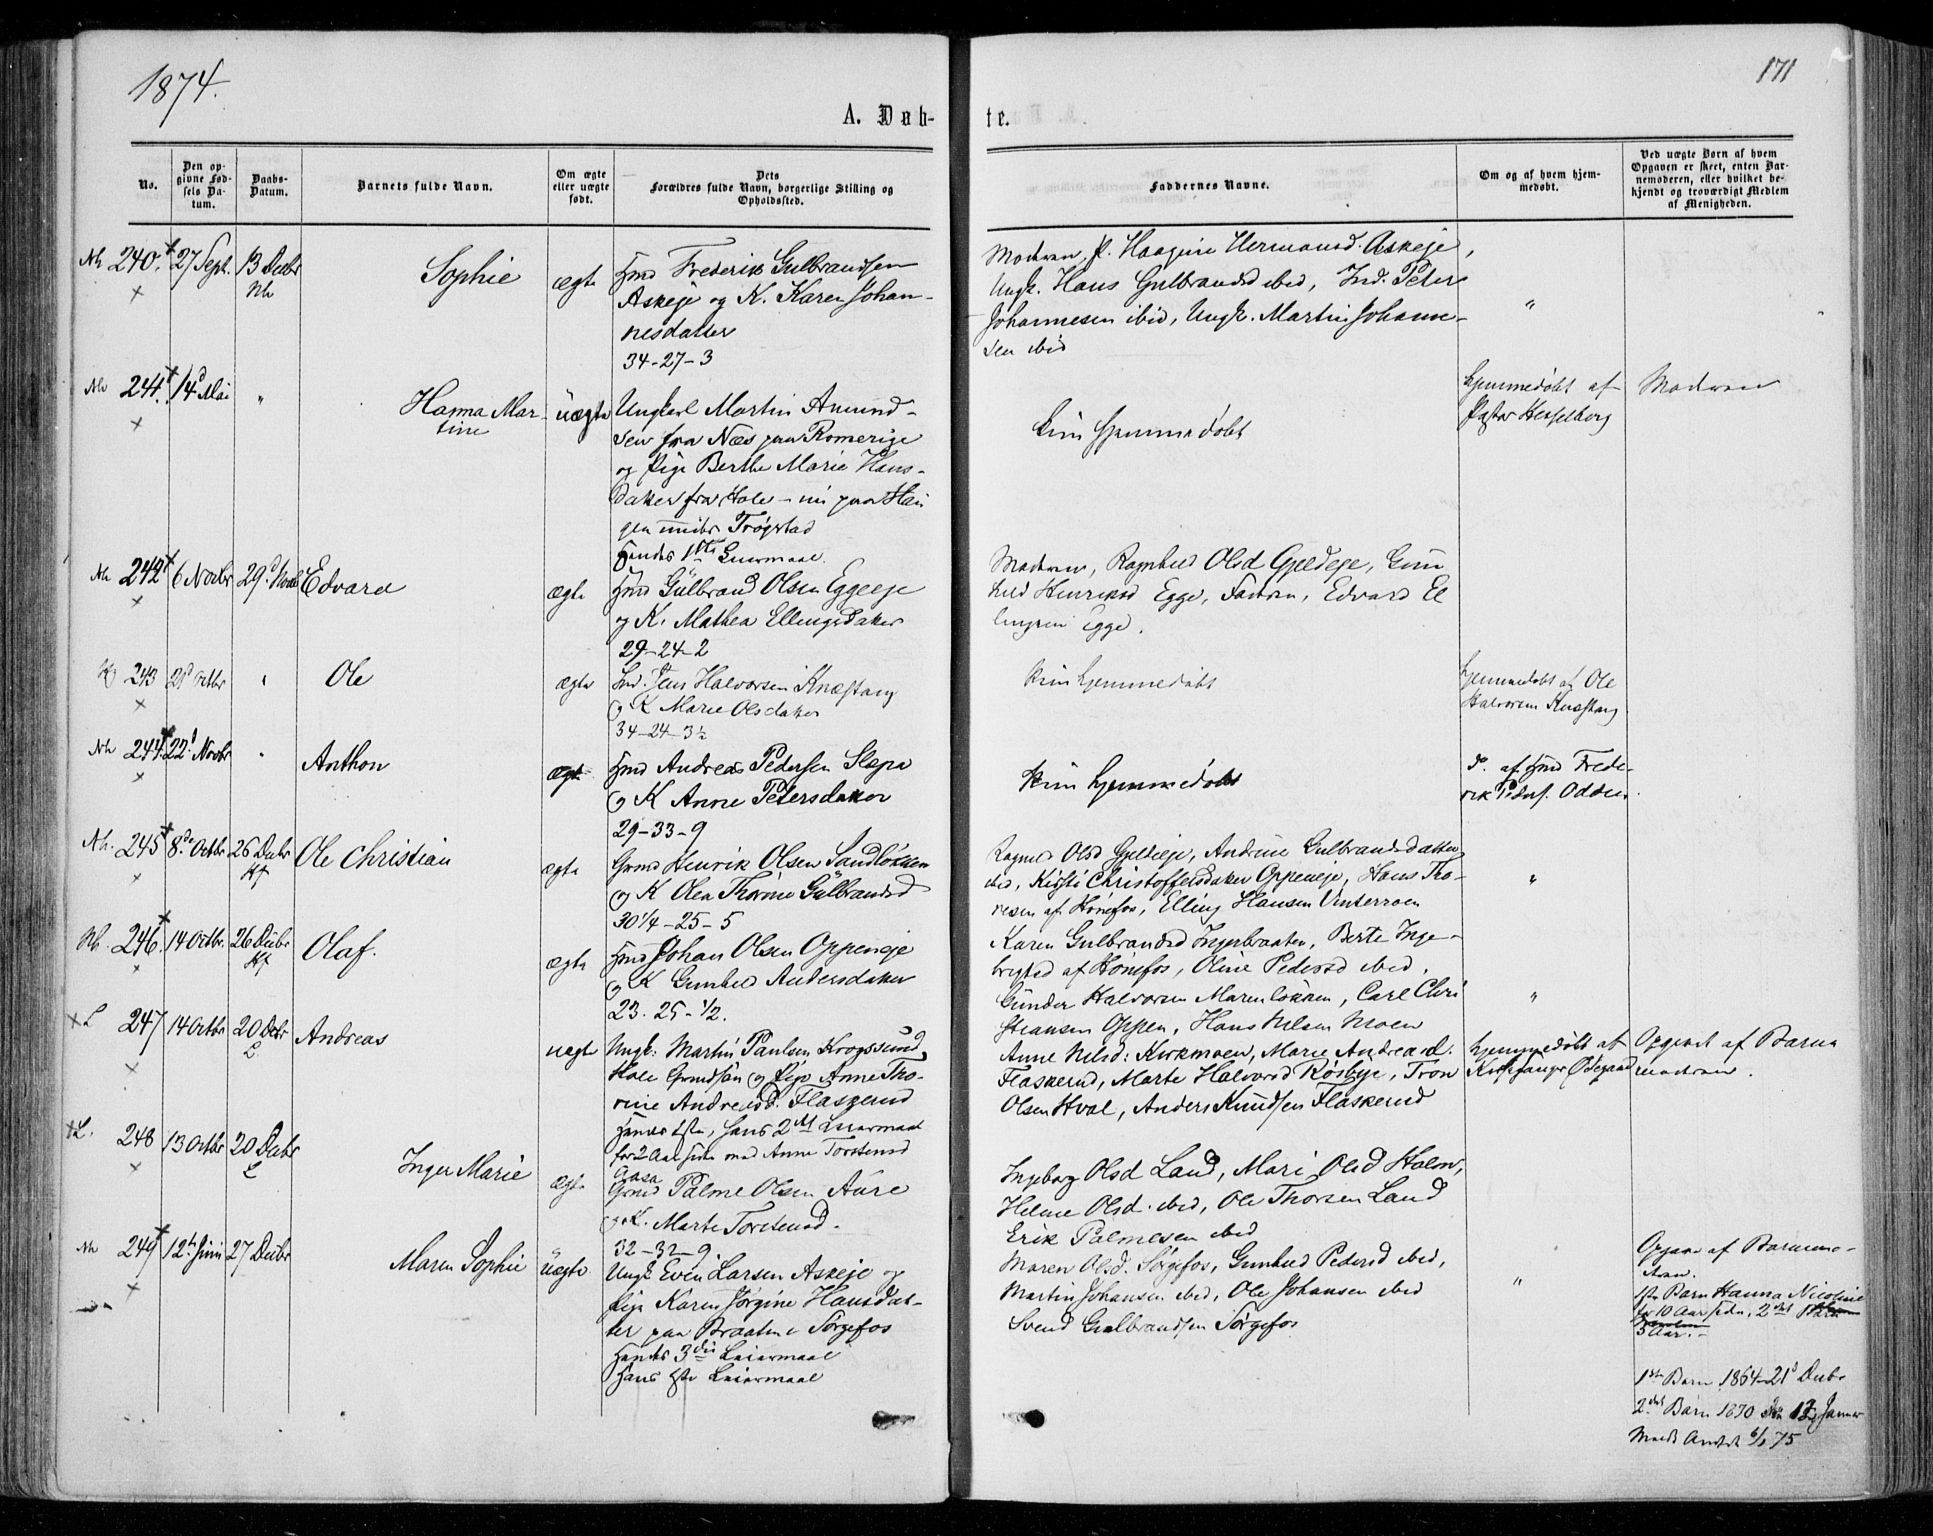 1874.
171
A. Døb-
te.
No.
Den op-
givne Fød-
sels Da-
tum.
Daabs-
Datum.
Barnets fulde Navn.
Om ægte
eller uægte
født.
Dets
Forældres fulde Navn, borgerlige Stilling og
Opholdssted.
Faddernes Navne.
Om og af hvem hjem-
medøbt.
Ved uægte Børn af hvem
Opgaven er skeet, enten Bar-
nemoderen, eller hvilket be-
kjendt og troværdigt Medlem
af Menigheden.
Nh 240. 27 Sept. 13 Decbr
Nh
Sophie
ægte
Hmd Frederik Gulbrandsen
Askeje og K. Karen Johan-
nesdatter
34-27-3
Moderen, P. Haagine Hermansd. Askeje,
Ungk. Hans Gulbrandsd ibid, Ind. Peter
Johannesen ibid, Ungk. Martin Johanne-
sen ibid
"
Nh 241. 14d Mai "
Hanna Mar-
tine
uægte
Ungkarl Martin Amund-
sen fra Næs paa Romerige
og Pige Berthe Marie Hans-
datter fra Hole - nu paa Hau
gen under Trøgstad
Hendes 1ste Leiermaal
kun hjemmedøbt
hjemmedøbt af
Pastor Hesselberg
Moderen
Nh 242 6 Novbr 29d Novbr
Edvard
ægte
Hmd Gülbrand Olsen Eggeeje
og K. Mathea Ellingsdatter
29-24-2
Moderen, Ragnhild Olsd Gjeldeje, Gun
hild Henriksd Egge, Faderen, Edvard El
lingsen Egge.
K 243 21d Octbr "
Ole
ægte
Ind. Jens Halvorsen Knestang
og K Marie Olsdatter
34-24-3½
kun hjemmedøbt
hjemmedøbt af Ole
Halvorsen Knestang
Nh 244 22d Novbr "
Anthon
ægte
Hmd Andreas Pedersen Slepa
og K Anne Petersdatter
29-33-9
kun hjemmedøbt
do. af Hmd Frede-
rik Peders. Odden.
Nh. 245 8de Octbr 26 Decbr
Hf
Ole Christian
ægte
Grmd Henrik Olsen Sandløkken
og K Olea Thorine Gülbrandsd
30 1/4-25-5
Ragnh. Olsd Gjeldeje, Andrine Gulbrandsdatter
ibid, Kirsti Christoffersdatter Oppeneje, Hans Tho-
resen af Hønefos, Elling Hansen Vinterroen
"
Nh. 246. 14 Octbr. 26 Decbr
Hf
Olaf.
ægte
Hmd Johan Olsen Oppeneje
og K Gunhild Andersdatter
23. 25-½.
Karen Gulbrandsd Ingerbraaten, Berte Inge-
brigtsd af Hønefos, Oline Pedersd ibid.
Günder Halvorsen Marenløkken, Carl Chri
stiansen Oppen, Hans Nilsen Moen
"
L 247 14 Octbr 20 Decbr
L
Andreas
uægte
Ungk: Martin Paulsen Krogssund,
Hole Grændsen og Pige Anne Tho-
rine Andreasd. Flaskerud
Hendes 1ste, hans 2det Leiermaal
for 2 Aar siden med Anne Torstensd
Anne Nilsd: Kirkmoen, Marie Andreasd.
Flaskerud, Marte Halvorsd Røsbye, Tron
Olsen Hval, Anders Knudsen Flaskerud
hjemmedøbt af
Kirksanger Ødegaard
Opgivet af Barne
moderen.
L. 248 13 Octbr 20 Decbr
L
Inger Marie
ægte
Grmd Palme Olsen Aure
og K. Marte Torstensd.
32-32-9
Ingeborg Olsd Land, Mari Olsd Holm,
Helene Olsd. ibid, Ole Thorsen Land
Erik Palmesen ibid
Nh 249 12te Juni 27 Decbr
Maren Sophie
uægte
Ungk Even Larsen Askeje og
Pige Karen Jørgine Hansdat-
ter paa Braaten i Sørgefos
Hendes 3die Leiermaal
Hans 1ste Leiermaal
Maren Olsd. Sørgefos, Gunhild Pedersd ibid,
Martin Johansen ibid, Ole Johansen ibid
Svend Gulbrandsen Sørgefos
"
Opgave af Barnemo-
deren.
1ste Barn Hanna Nicoline
for 10 Aar siden, 2det
5 Aar.
1ste Barn 1864-21d Decbr
2det Barn 1870 den 13 Januar